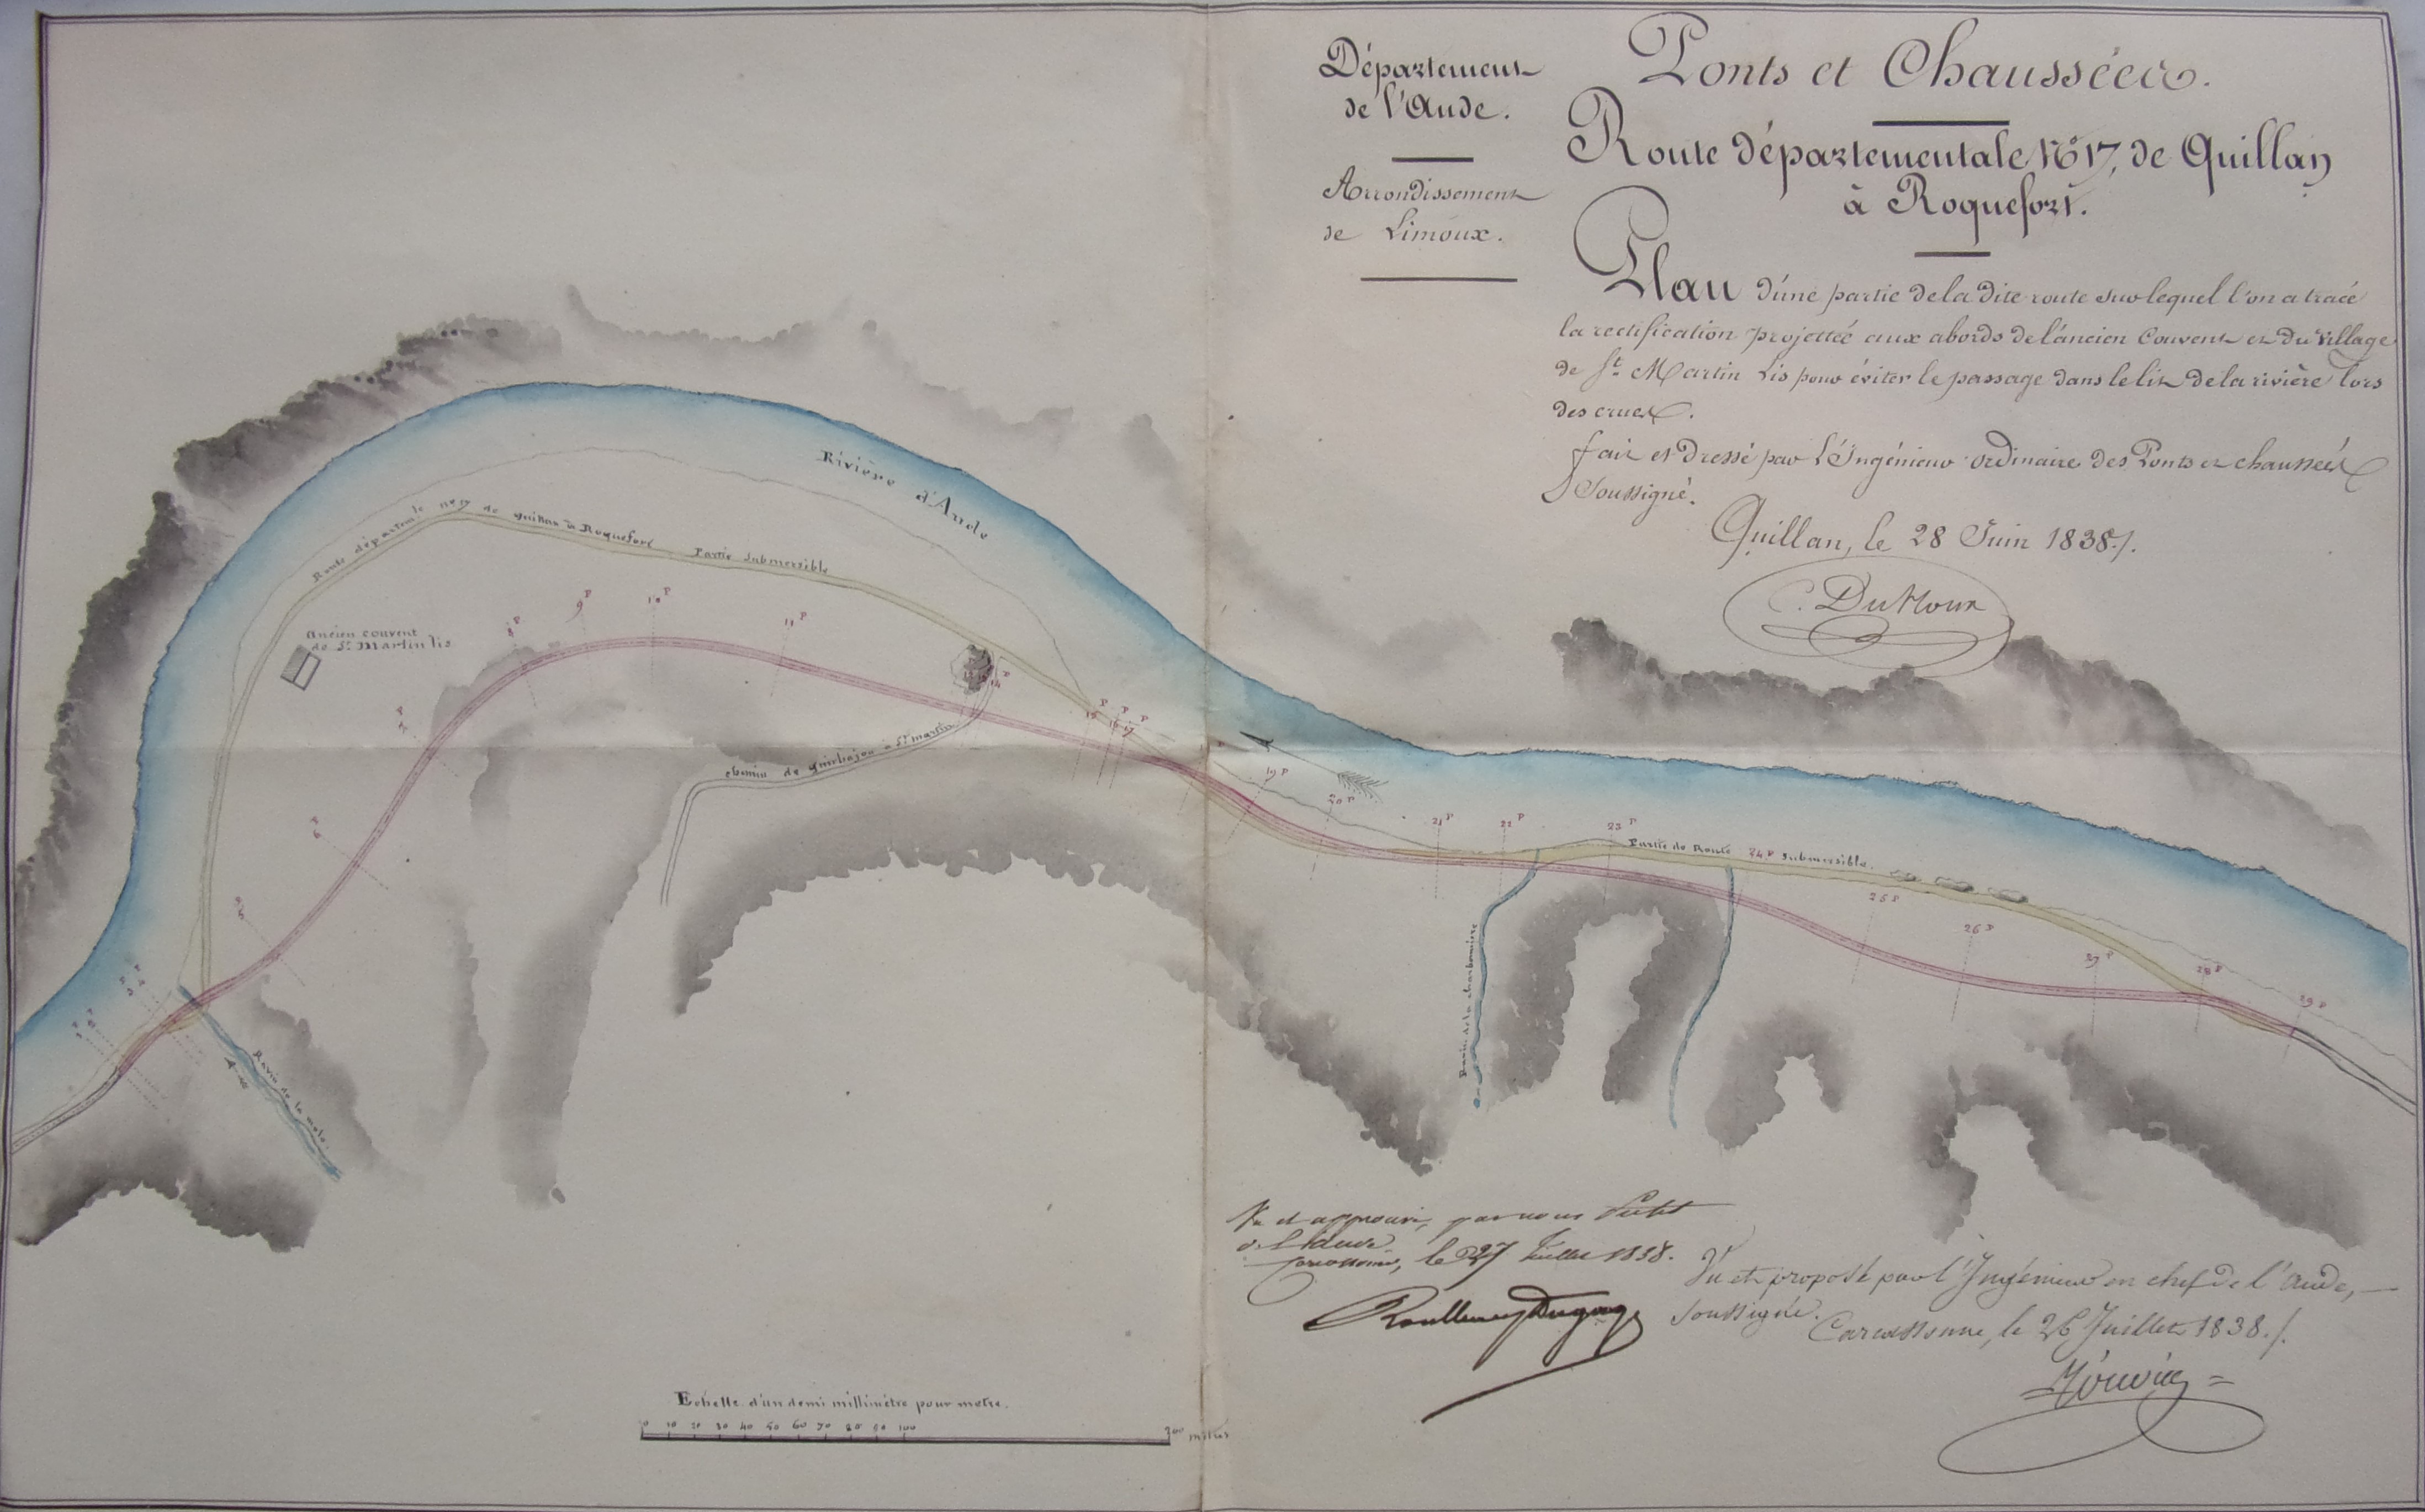 Département
de l'Aude.
Arrondissement
de Limoux.
Ponts et Chaussées.
Route départementale N° 17, de Quillan
à Roquefort.
Plan d'une partie de la dite route sur lequel l'on a tracé
la rectification projettée aux abords de l'ancien Couvent et du village
de St. Martin Lis pour éviter le passage dans le lit de la rivière lors
des crues.
fait et dressé par l'Ingénieur ordinaire des Ponts et chaussées
Soussigné.
Quillan, le 28 Juin 1838./.
Rivière d'Aude
Route départem.le n° 17 de quillan à Roquefort Partie Submersible
ancien couvent
de St. Martin lis
8 P
9 P
10 P
11 P
P 7
P 6
P 5
14 P
15 P
16 P
17 P
chemin de quirbajou à St martin
19 P
20 P
21 P
22 P
23 P
Partie de Route
24 P
Submersible.
25 P
26 P
27 P
28 P
29 P
Ravin de la charbonnière
Ravin de la
Vu et approuvé, par nous Préfet
de l'Aude.
Carcassonne, le 27 Juillet 1838.
Vu et proposé par l'Ingénieur en chef de l'Aude,
soussigné.
Carcassonne, le 26 Juillet 1838./.
Echelle d'un demi millimètre pour mètre.
0 10 20 30 40 50 60 70 80 90 100 200 mètres